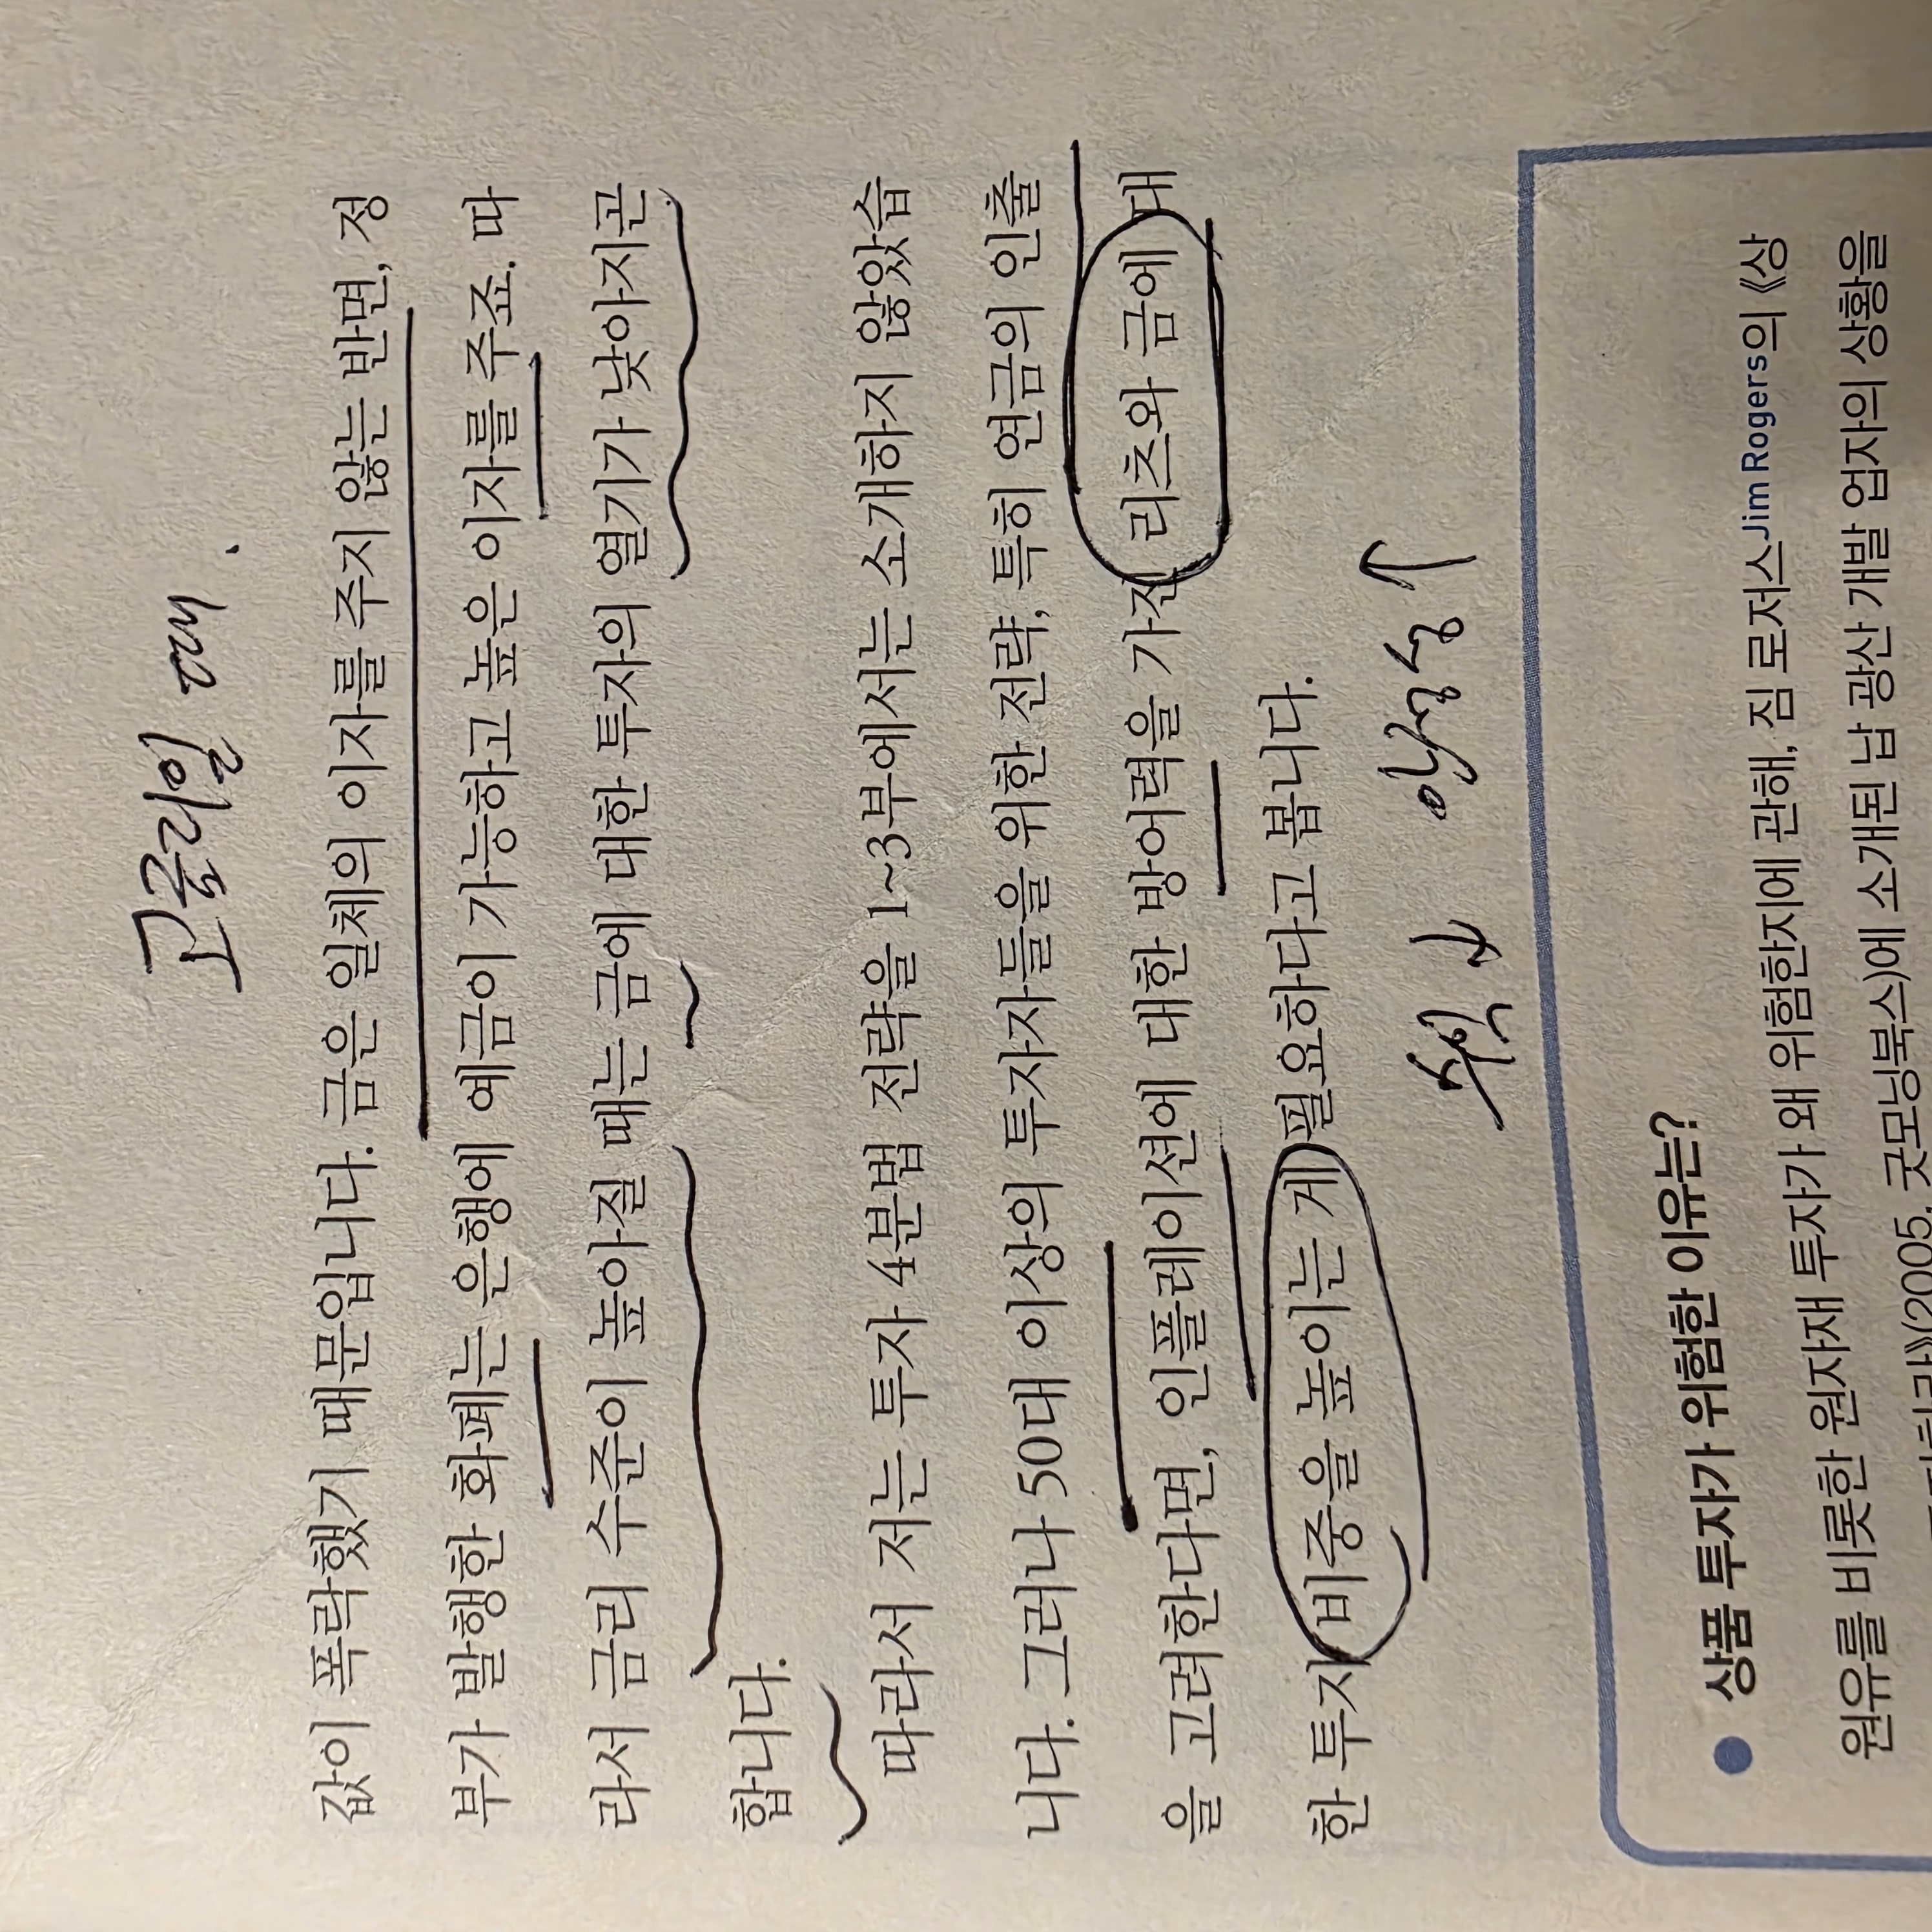 고금리일 때
값이 폭락했기 때문입니다. 금은 일체의 이자를 주지 않는 반면, 정
부가 발행한 화폐는 은행에 예금이 가능하고 높은 이자를 주죠. 따
라서 금리 수준이 높아질 때는 금에 대한 투자의 열기가 낮아지곤
합니다.
따라서 저는 투자 4분법 전략을 1~3부에서는 소개하지 않았습
니다. 그러나 50대 이상의 투자자들을 위한 전략, 특히 연금의 인출
을 고려한다면, 인플레이션에 대한 방어력을 가진 리츠와 금에 대
한 투자 비중을 높이는 게 필요하다고 봅니다.
↓ ↑
● 상품 투자가 위험한 이유는?
원유를 비롯한 원자재 투자가 왜 위험한지에 관해, 짐 로저스Jim Rogers의 《상
(2005, 굿모닝북스)에 소개된 납 광산 개발 업자의 상황을